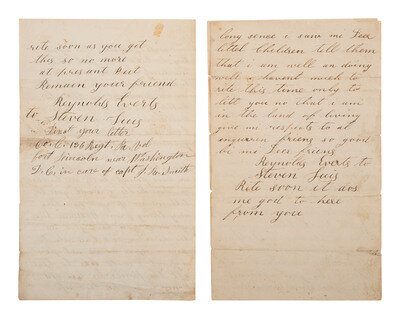 rite soon as you get
this so no more
at presant But
Remain your friend
Reynolds Everts
to Steven
Direct your letter
Co. C. 126 Regt.
fort Lincoln near Washington
D.C. in care of capt Smith
long sense i saw me Deer
littel Children tell them
that i am well an doing
well i havent much to
rite this time only to
lett you no that i am
in the land of living
give my respects to al
inquiren friens so good
bi mi Deer friens
Reynolds Everts to
Steven
Rite soon it dos
me god to here
from you